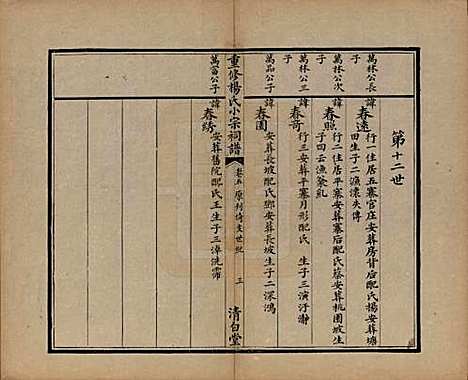 第十二世
萬林公長子
諱春遠
行一住居五寨官庄安葬房背后配氏楊安葬塘田生子二漁懷失傳
萬林公次子
諱春照
行二住居平寨安葬寨后配氏蔡安葬桃園坡生子四云漁篆亂
萬林公三子
諱春奇
行三安葬平寨月形配氏 生子三演汙瀞
萬品公子
諱春圃
安葬長坡配氏鄧安葬長坡生子二深鴻
重修楊氏小宗祠譜
卷五 原村倚支世紀 三 清白堂
萬畄公子
諱春綉
安葬舊院配氏王生子三淖洗霈